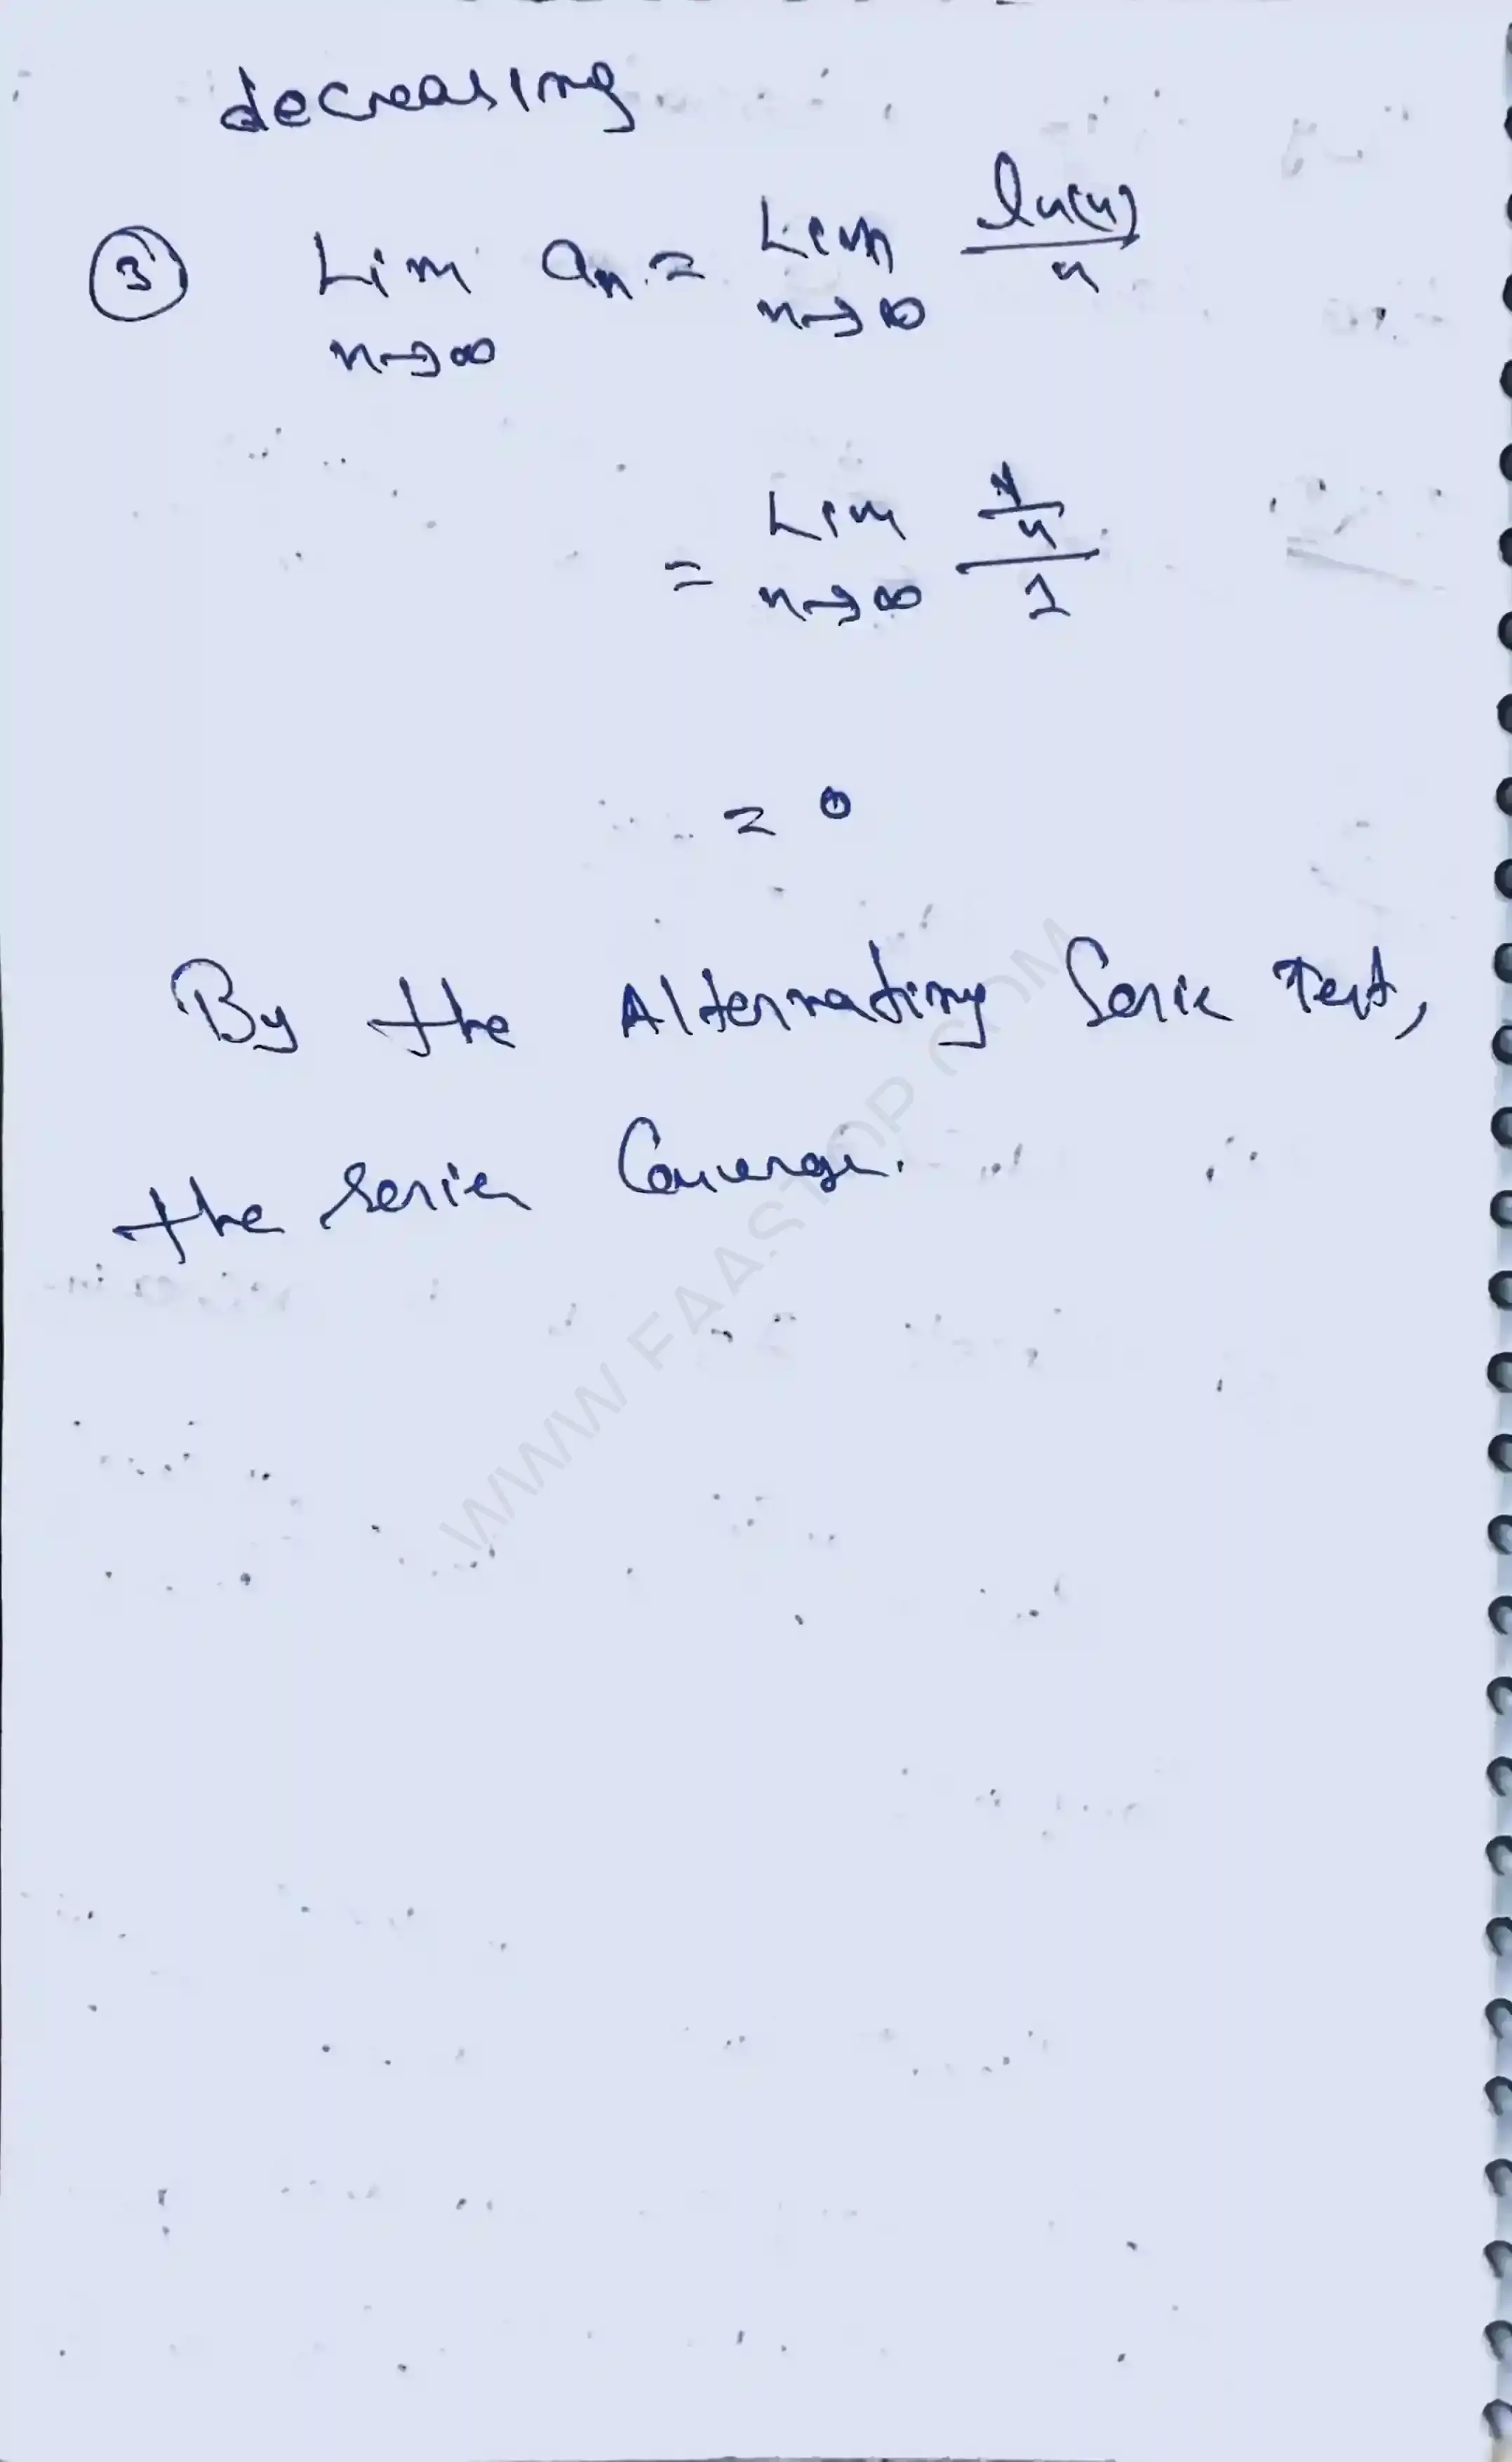 decreasing
③ Lim n→∞ an = Lim n→∞ ln(n)/n
= Lim n→∞ (1/n)/1
= 0
By the Alternating Serie Test,
the series Converge.
WWW.FAASTOP.COM